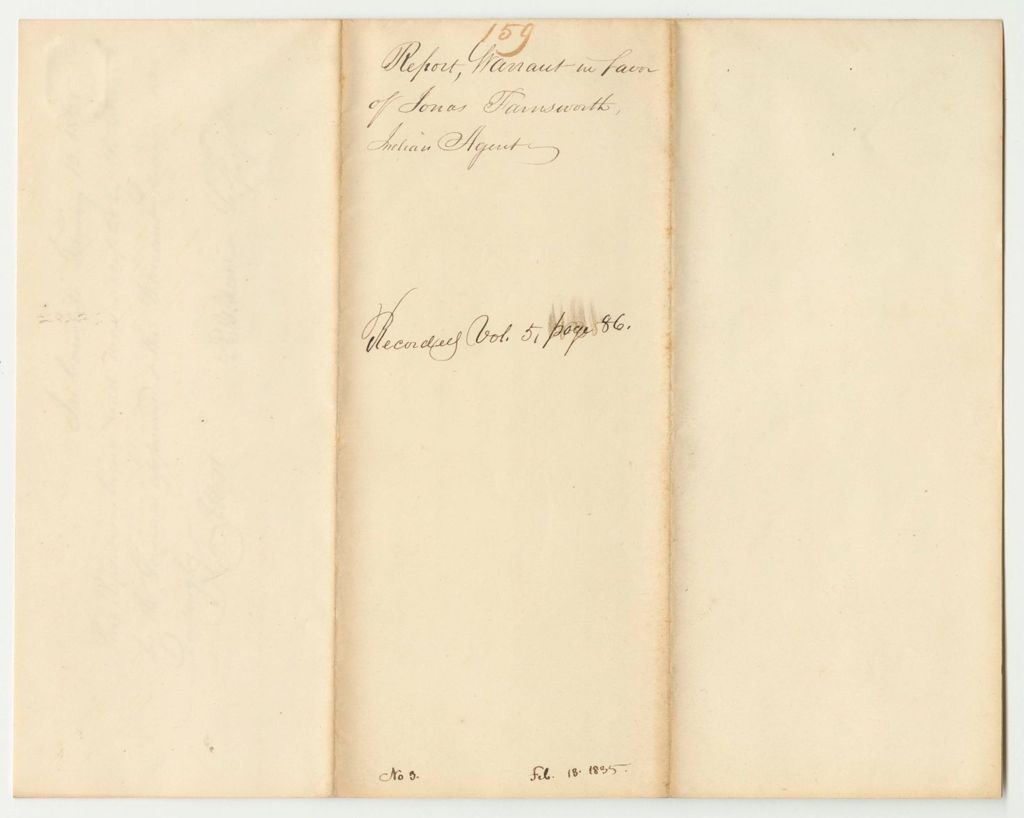 159
Report, Warrant in favor
of Jonas Farnsworth,
Indian Agent
Recorded Vol. 5, page 86.
No 3. Feb. 18. 1835.